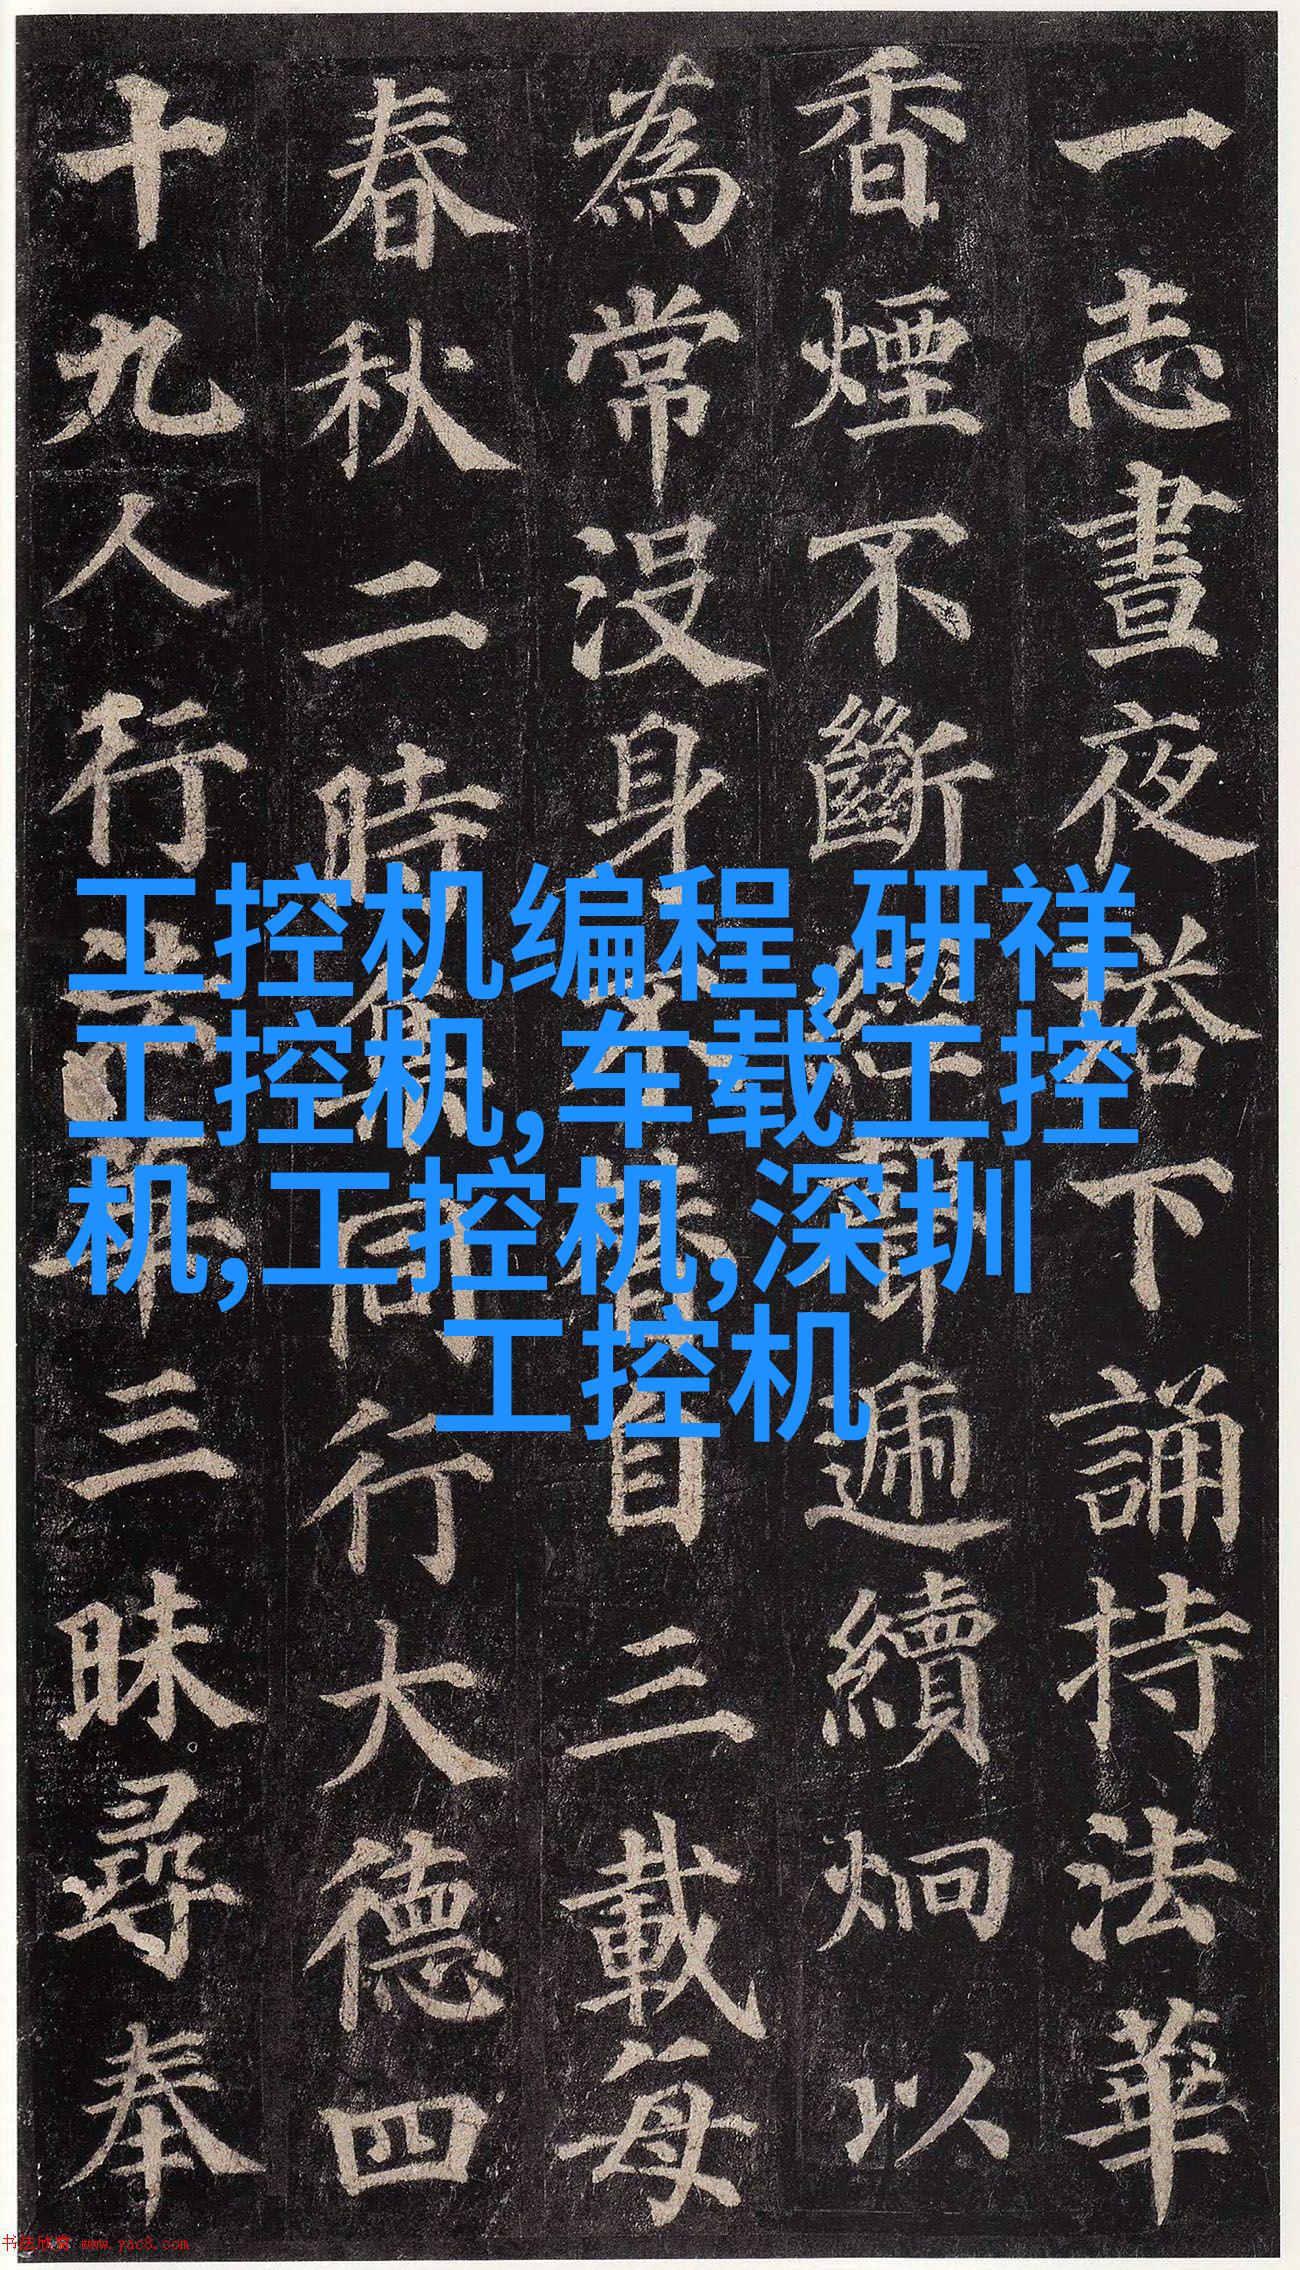 一志晝夜塔下誦持法華
香煙不斷經聲遞續炯以
為常没身不替自三載每
春秋二時集同行大德四
十九人行法華三昧尋奉
工控机编程,研祥
工控机,车载工控
机,工控机,深圳
工控机
书法欣赏 www.yac8.com